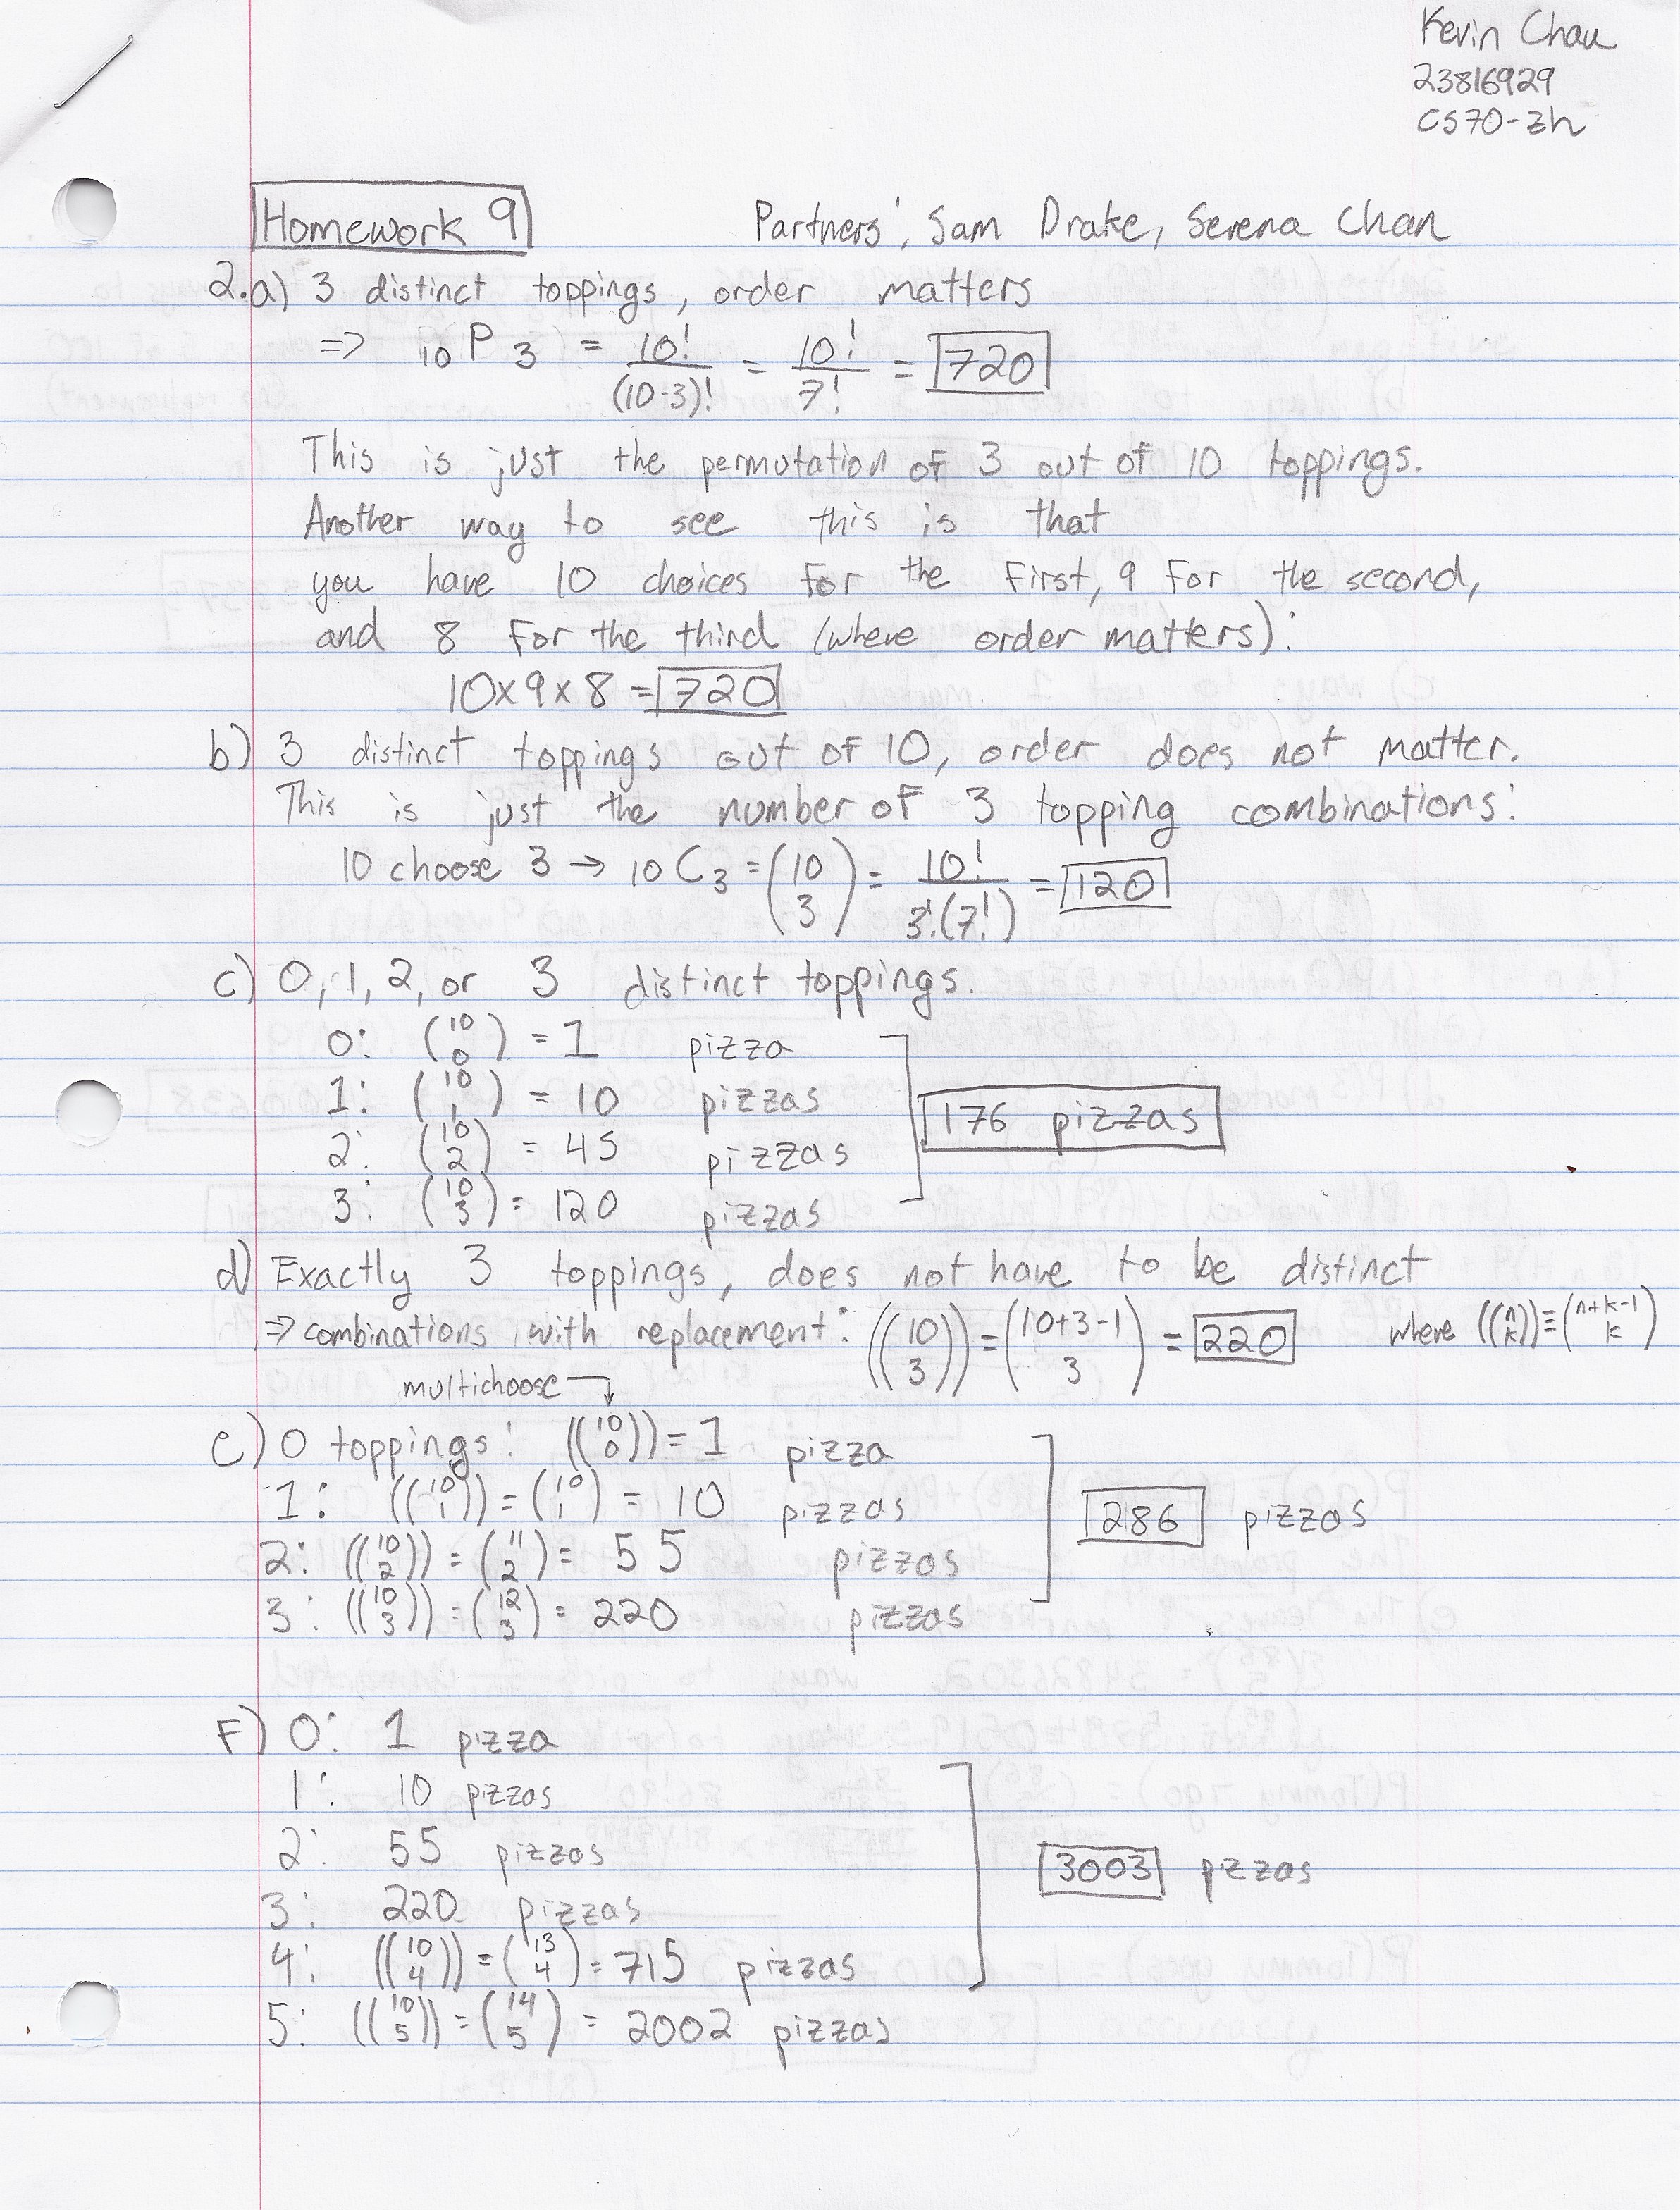 Kevin Chau
23816929
CS70-zh
Homework 9
Partners: Sam Drake, Serena Chan
2.a) 3 distinct toppings, order matters
=> 10 P 3 = 10!/(10-3)! = 10!/7! = 720
This is just the permutation of 3 out of 10 toppings.
Another way to see this is that
you have 10 choices for the first, 9 for the second,
and 8 for the third (where order matters):
10x9x8 = 720
b) 3 distinct toppings out of 10, order does not matter.
This is just the number of 3 topping combinations:
10 choose 3 → 10 C 3 = (10 3) = 10!/3!(7!) = 120
c) 0, 1, 2, or 3 distinct toppings.
0: (10 0) = 1 pizza
1: (10 1) = 10 pizzas
176 pizzas
2: (10 2) = 45 pizzas
3: (10 3) = 120 pizzas
d) Exactly 3 toppings, does not have to be distinct
=> combinations with replacement: ((10 3)) = (10+3-1 3) = 220 where ((n k)) ≡ (n+k-1 k)
multichoose
e) 0 toppings: ((10 0)) = 1 pizza
1: ((10 1)) = (10 1) = 10 pizzas
286 pizzas
2: ((10 2)) = (11 2) = 55 pizzas
3: ((10 3)) = (12 3) = 220 pizzas
F) 0: 1 pizza
1: 10 pzzas
2: 55 pizzas
3003 pzzas
3: 220 pizzas
4: ((10 4)) = (13 4) = 715 pizzas
5: ((10 5)) = (14 5) = 2002 pizzas